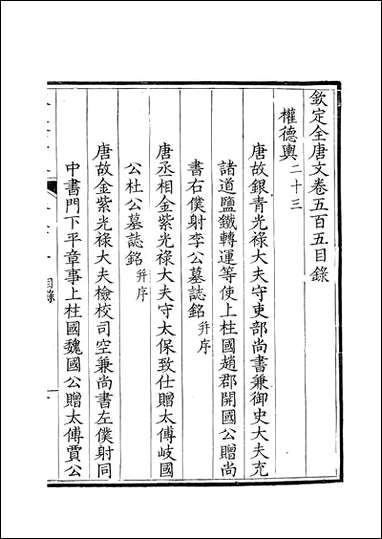 欽定全唐文卷五百五目錄
權德輿二十三
唐故銀青光祿大夫守吏部尚書兼御史大夫充
諸道鹽鐵轉運等使上柱國趙郡開國公贈尚
書右僕射李公墓誌銘并序
唐丞相金紫光祿大夫守太保致仕贈太傅岐國
公杜公墓誌銘并序
唐故金紫光祿大夫檢校司空兼尚書左僕射同
中書門下平章事上柱國魏國公贈太傅賈公
目錄